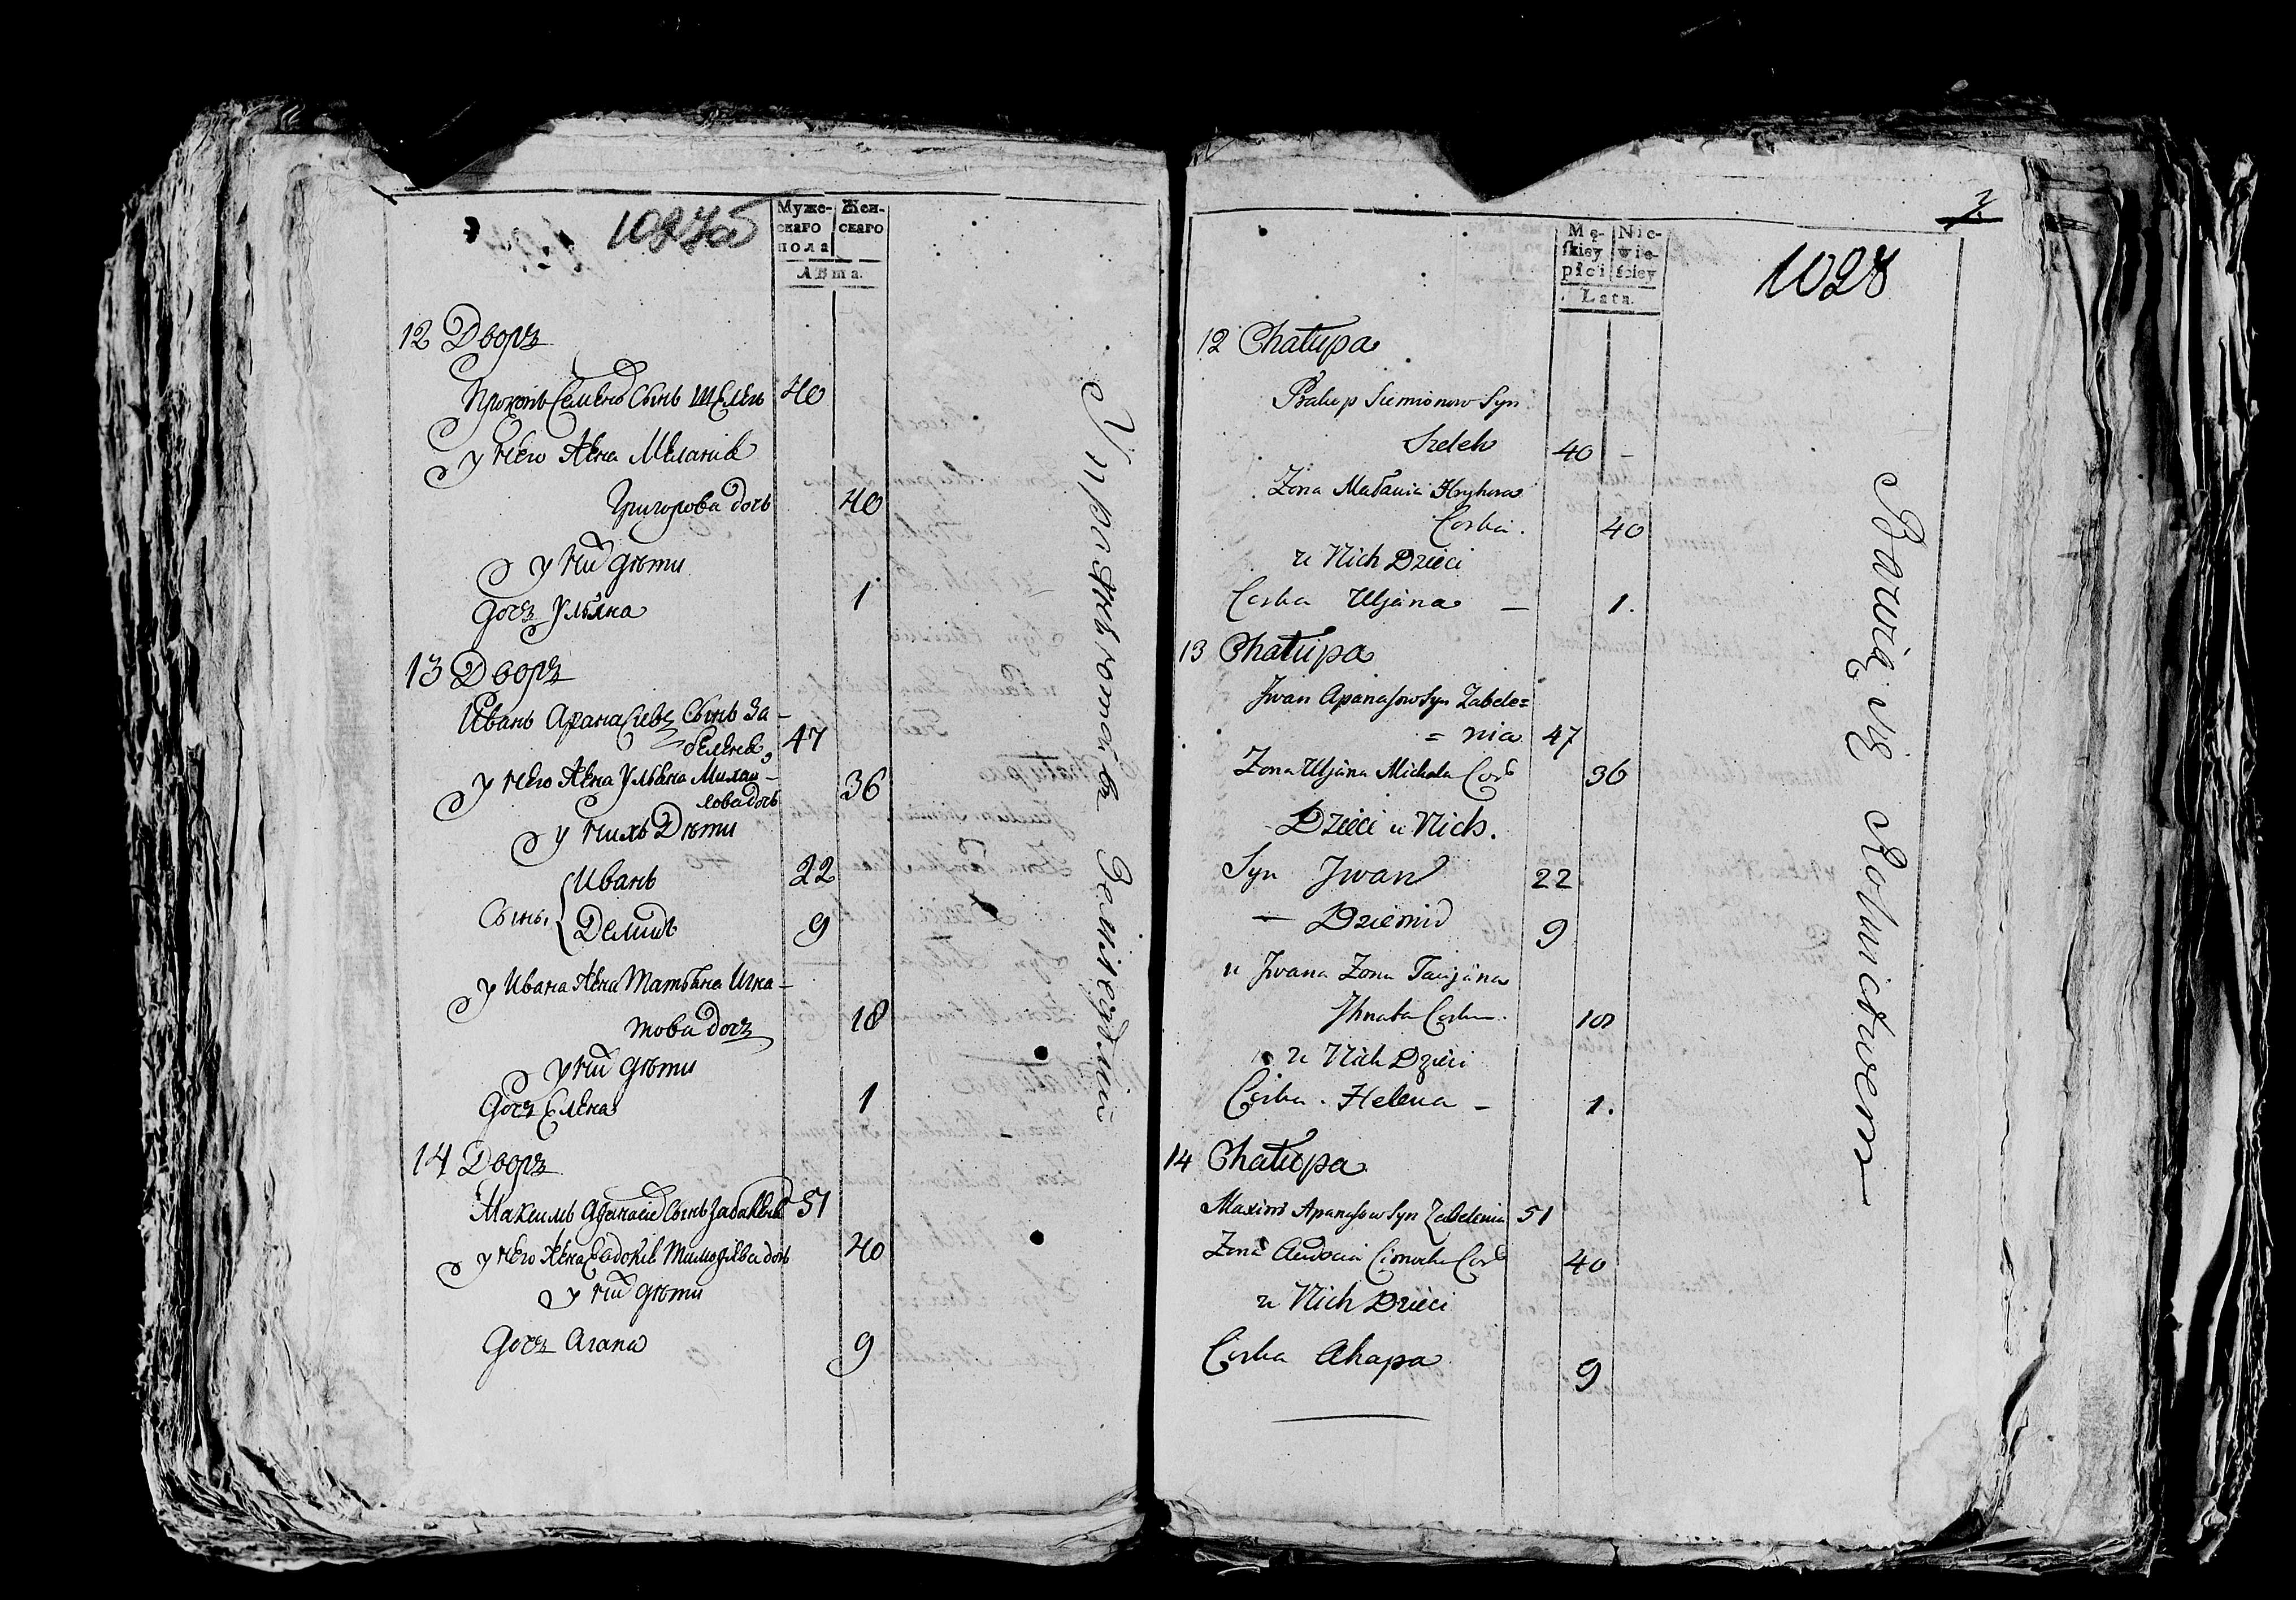 1027об
Муже-
скаго
пола
Жен-
скаго
Лѣта.
12 Дворъ
Прокопъ Семенов Сынъ Шелегъ 40
у Него Жена Меланія
Григорова дочь 40
у них дѣти
дочъ Ульяна 1
13 Дворъ
Иванъ Афанасиевъ Сынъ За-
беленя 47
у Него Жена Ульяна Михаи-
лова дочь 36
у Нихъ Дѣти
Сынъ Иванъ 22
Демидъ 9
у Ивана Жена Татьяна Игна-
това дочъ 18
у них дѣти
дочъ Елена 1
14 Дворъ
Максимъ Афанасиев Сынъ Забеленя 51
у Него Жена Евдокія Тимофѣева дочь 40
у них дѣти
дочъ Агапа 9
Упражняются въ Земледѣліи
3.
1028
Mę-
skiey
płci
Nie-
wie-
ściey
Lata.
12 Chałupa
Prakop Siemionow Syn
Szeleh 40 -
Zona Małania Hryhora
Corka. 40
u Nich Dzieci
Corka Uljana - 1.
13 Chałupa
Jwan Apanasow Syn Zabele=
= nia 47
Zona Uljana Michała Cor 36
Dzieci u Nich.
Syn Jwan 22
- Dziemid 9
u Jwana Zona Tacijana
Jhnata Corka. 18
u Nich Dzieci
Corka - Helena - 1.
14 Chałupa
Maxim Apanasow Syn Zabelenia 51
Zona Audocia Cimocha Cor 40
u Nich Dzieci
Corka Ahapa 9
Bawią się Rolnictwem